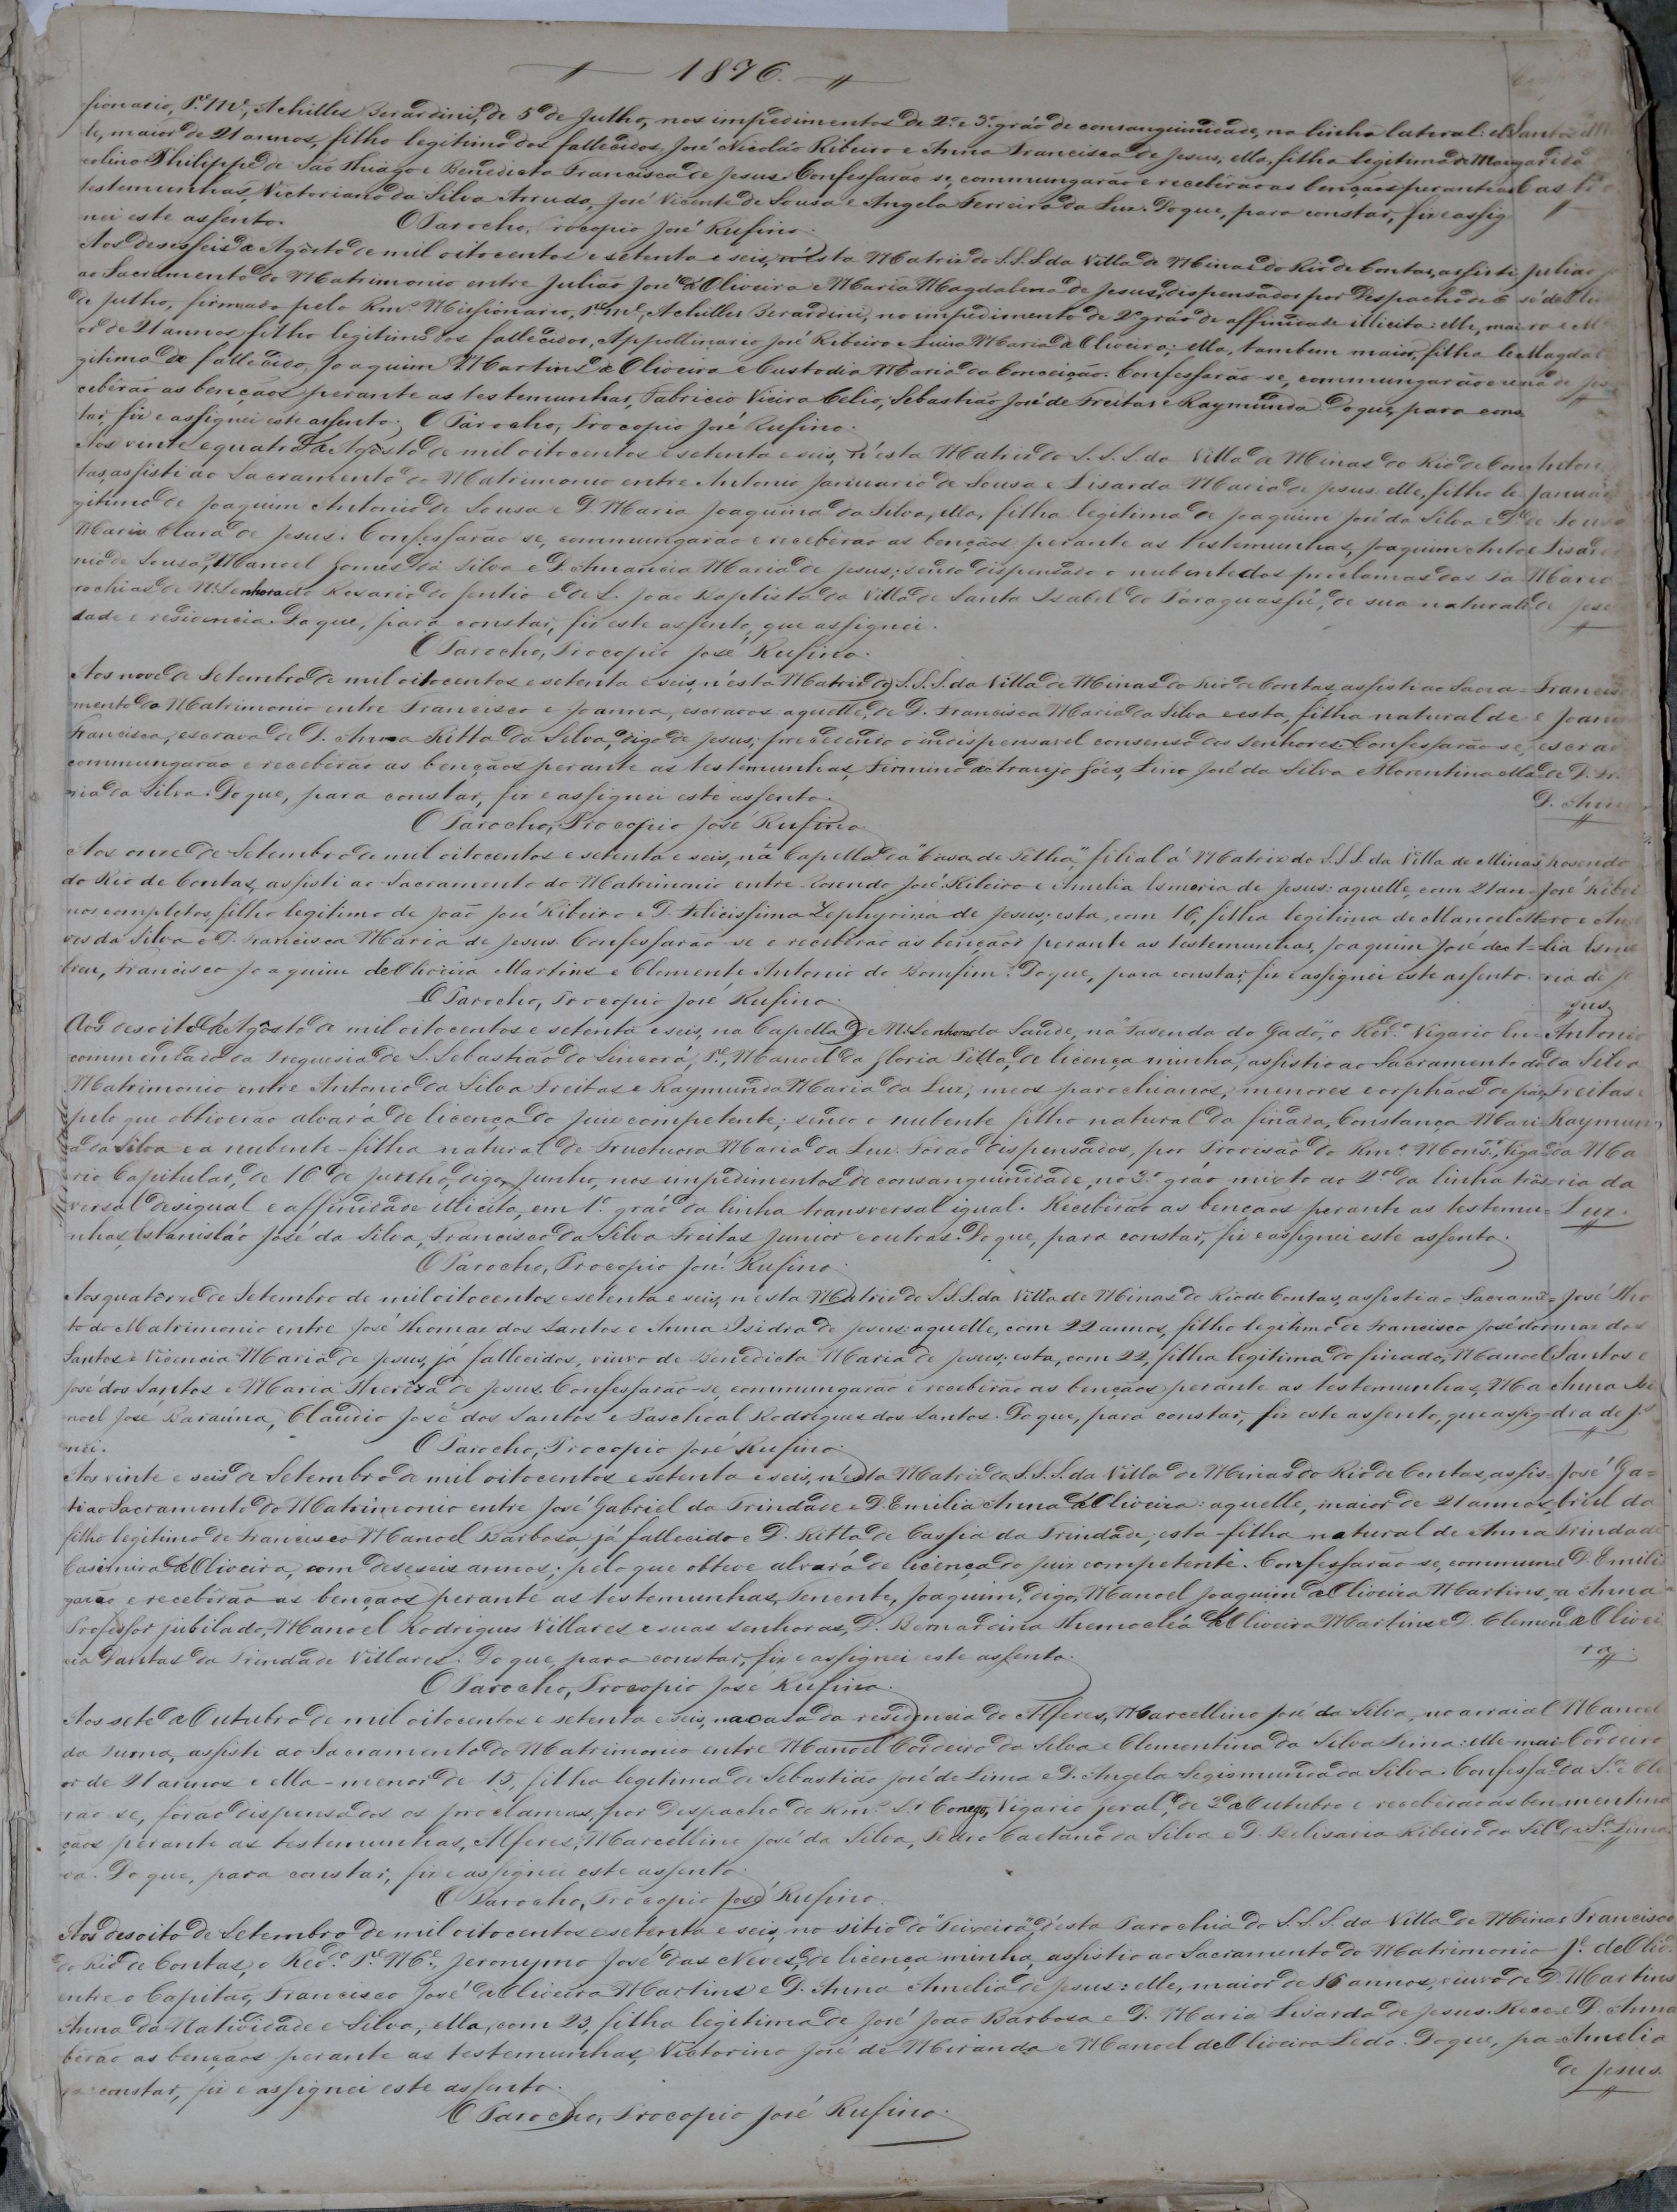 1876.
sionario, P.e M.e, Achilles Berardini, de 5 de Julho, nos impedimentos de 2.º e 3.º gráo de consanguinidade, na linha lateral: el
le, maior de 21 annos, filho legitimo dos fallecidos, José Nicoláo Ribeiro e Anna Francisca de Jesus; ella, filha legitima de
colino Philippe de São Thiago e Benedicta Francisca de Jesus. Confessarão-se, commungarão e receberão as bençaos perante as
testemunhas, Victoriano da Silva Arruda, José Vicente de Sousa e Angela Ferreira da Luz. Do que, para constar, fiz e assig
nei este assento. O Parocho, Procopio José Rufino.
Aos deseseis de Agôsto de mil oitocentos e setenta e seis, n'esta Matriz do S.S.S. da Villa de Minas do Rio de Contas, assisti Julião
ao Sacramento do Matrimonio entre Julião José d'Oliveira e Maria Magdalena de Jesus, dispensados por Despacho de 6 sé de Oli
de Julho, firmado pelo Rm.º Missionario, P.e M.e, Achilles Berardini, no impedimento de 2º gráo de affinidade illicita: elle, mai ra e M
or de 21 annos, filho legitimo dos fallecidos, Appollinario José Ribeiro e Luisa Maria de Oliveira; ella, tambem maior, filha le Magdal
gitima do fallecido, Joaquim Martins de Oliveira e Custodia Maria da Conceição. Confessarão-se, commungarão e re na de Je
ceberão as bençaos perante as testemunhas, Fabricio Vieira Celio, Sebastião José de Freitas e Raymunda Do que, para cons
tar, fiz e assignei este assento. O Parocho, Procopio José Rufino.
Aos vinte e quatro de Agôsto de mil oitocentos e setenta e seis, n'esta Matriz do S.S.S. da Villa de Minas do Rio de Con Anton
tas, assisti ao Sacramento do Matrimonio entre Antonio Januario de Sousa e Lisarda Maria de Jesus: elle, filho le- Januar
gitimo de Joaquim Antonio de Sousa e D. Maria Joaquina da Silva, ella, filha legitima de Joaquim José da Silva e D. de Sousa
Maria Clara de Jesus. Confessarão-se, commungarão e receberão as bençãos perante as testemunhas, Joaquim Anto e Lisar
nio de Sousa, Manoel Gomes da Silva e D. Amancia Maria de Jesus; sendo dispensado o nubente dos proclamas das Pa Maria
rochias de N. Senhora do Rosario do Gentio e de S. João Baptista da Villa de Santa Izabel do Paraguassú, de sua naturali de Jesu
dade e residencia. Do que, para constar, fiz este assento, que assignei.
O Parocho, Procopio José Rufino.
Aos nove de Setembro de mil oitocentos e setenta e seis, n'esta Matriz do S.S.S. da Villa de Minas do Rio de Contas, assisti ao Sacra= Francis
mento do Matrimonio entre Francisco e Joanna, escravos: aquelle, de D. Francisca Maria da Silva e esta, filha natural de e Joan
Francisca, escrava de D. Anna Ritta da Silva, digo de Jesus; precedendo o indispensavel consenso dos senhores. Confessarão-se, escra
commungarão e receberão as bençaos perante as testemunhas, Firmino de Araujo Góes, Lino José da Silva e Florentina Ma de D. Fr
ria da Silva. Do que, para constar, fiz e assignei este assento. D. Ann
O Parocho, Procopio José Rufino.
Aos onze de Setembro de mil oitocentos e setenta e seis, na Capella da "Casa de Telha", filial á Matriz do S.S.S. da Villa de Minas Rosendo
do Rio de Contas, assisti ao Sacramento do Matrimonio entre Rosendo José Ribeiro e Amelia Esmeria de Jesus: aquelle, com 21 an= José Ribei
nos completos, filho legitimo de João José Ribeiro e D. Felicissima Zephyrina de Jesus; esta, com 16, filha legitima de Manoel =ro e Am
ves da Silva e D. Francisca Maria de Jesus. Confessarão-se e receberão as bençaos perante as testemunhas, Joaquim José de A= lia Esme
breu, Francisco Joaquim de Oliveira Martins e Clemente Antonio do Bomfim. Do que, para constar, fiz e assignei este assento. ria de Je
O Parocho, Procopio José Rufino. sus
Aos desoito de Agôsto de mil oitocentos e setenta e seis, na Capella de N. Senhora da Saude, na "Fasenda do Gado", o Red.º Vigario En= Antonio
commendado da Freguesia de S. Sebastião do Sincorá, P.e, Manoel da Gloria Pitta, de licença minha, assistio ao Sacramento do da Silva
Matrimonio entre Antonio da Silva Freitas e Raymunda Maria da Luz, meos parochianos, menores e orphãos de pai, Freitas e
pelo que obtiverão alvará de licença do Juiz competente; sendo o nubente filho natural da finada, Constança Mari Raymun
a da Silva e a nubente - filha natural de Fructuosa Maria da Luz. Forão dispensados, por Provisão do Rm.º Mons.r, Viga= da Ma
rio Capitular, de 16 de Julho, digo, Junho, nos impedimentos de consanguinidade, no 3º gráo mixto ao 2º da linha trãs= ria da
versal desigual e affinidade illicita, em 1º gráo da linha transversal igual. Receberão as bençaos perante as testemu= Luz.
nhas, Estanisláo José da Silva, Francisco da Silva Freitas Junior e outros. Do que, para constar, fiz e assignei este assento.
O Parocho, Procopio José Rufino.
Aos quatorze de Setembro de mil oitocentos e setenta e seis, n'esta Matriz do S.S.S. da Villa de Minas do Rio de Contas, assisti ao Sacramẽ= José Tho
to do Matrimonio entre José Thomaz dos Santos e Anna Isidra de Jesus: aquelle, com 22 annos, filho legitimo de Francisco José dos maz dos
Santos e Vicencia Maria de Jesus, já fallecidos, viuvo de Benedicta Maria de Jesus; esta, com 22, filha legitima do finado, Manoel Santos e
José dos Santos e Maria Theresa de Jesus. Confessarão-se, commungarão e receberão as bençaos perante as testemunhas, Ma Anna Isi
noel José Baraúna, Claudio José dos Santos e Paschoal Rodrigues dos Santos. Do que, para constar, fiz este assento, que assig= dra de J.s
nei. O Parocho, Procopio José Rufino.
Aos vinte e seis de Setembro de mil oitocentos e setenta e seis, n'esta Matriz do S.S.S. da Villa de Minas do Rio de Contas, assis= José Ga=
ti ao Sacramento do Matrimonio entre José Gabriel da Trindade e D. Emilia Anna d'Oliveira: aquelle, maior de 21 annos, briel da
filho legitimo de Francisco Manoel Barbosa, já fallecido e D. Ritta de Cassia da Trindade; esta - filha natural de Anna Trindade
Casimira d'Oliveira, com deseseis annos; pelo que obteve alvará de licença do Juiz competente. Confessarão-se, commun= e D. Emili
garão e receberão as bençaos perante as testemunhas, Tenente, Joaquim, digo, Manoel Joaquim de Oliveira Martins, a Anna
Professor jubilado, Manoel Rodrigues Villares e suas senhoras, D. Bernardina Themoclea d'Oliveira Martins e D. Clemen de Olivei
cia Dantas da Trindade Villares. Do que, para constar, fiz e assignei este assento. ra.
O Parocho, Procopio José Rufino.
Aos sete de Outubro de mil oitocentos e setenta e seis, na casa da residencia do Alferes, Marcellino José da Silva, no arraial Manoel
da Furna, assisti ao Sacramento do Matrimonio entre Manoel Cordeiro da Silva e Clementina da Silva Lima: elle mai= Cordeiro
or de 21 annos e ella - menor de 15, filha legitima de Sebastião José de Lima e D. Angela Segismunda da Silva. Confessa= da S.a e Cle
rão-se, forão dispensados os proclamas, por Despacho do Rm.º S.r Conego, Vigario Geral, de 2 de Outubro e receberão as ben mentina
çãos perante as testemunhas, Alferes, Marcellino José da Silva, Pedro Caetano da Silva e D. Belisaria Ribeiro da Sil da S.a Lima.
va. Do que, para constar, fiz e assignei este assento.
O Parocho, Procopio José Rufino.
Aos desoito de Setembro de mil oitocentos e setenta e seis, no sitio do "Teixeira", d'esta Parochia do S.S.S. da Villa de Minas Francisco
do Rio de Contas, o Red.º P.e M.e, Jeronymo José das Neves, de licença minha, assistio ao Sacramento do Matrimonio J.e de Oliv.a
entre o Capitão, Francisco José de Oliveira Martins e D. Anna Amelia de Jesus: elle, maior de annos, viuvo de D. Martins
Anna da Natividade e Silva, ella, com 23, filha legitima de José João Barbosa e D. Maria Lisarda de Jesus. Rece= e D. Anna
berão as bençaos perante as testemunhas, Victorino José de Miranda e Manoel de Oliveira Ledo. Do que, pa= Amelia
ra constar, fiz e assignei este assento. de Jesus.
O Parocho, Procopio José Rufino.